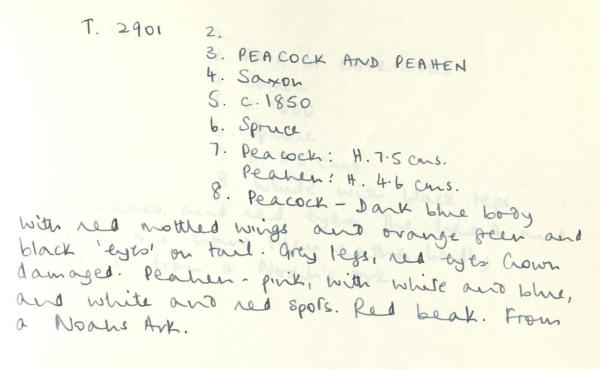 T. 2901 2.
3. PEACOCK AND PEAHEN
4. Saxon
5. c.1850
6. Spruce
7. Peacock: H.7.5 cms.
Peahen: H. 4.6 cms.
8. Peacock – Dark blue body
with red mottled wings and orange green and
black 'eyes' on tail. Grey legs, red eyes. Crown
damaged. Peahen - pink, with white and blue,
and white and red spots. Red beak. From
a Noahs Ark.